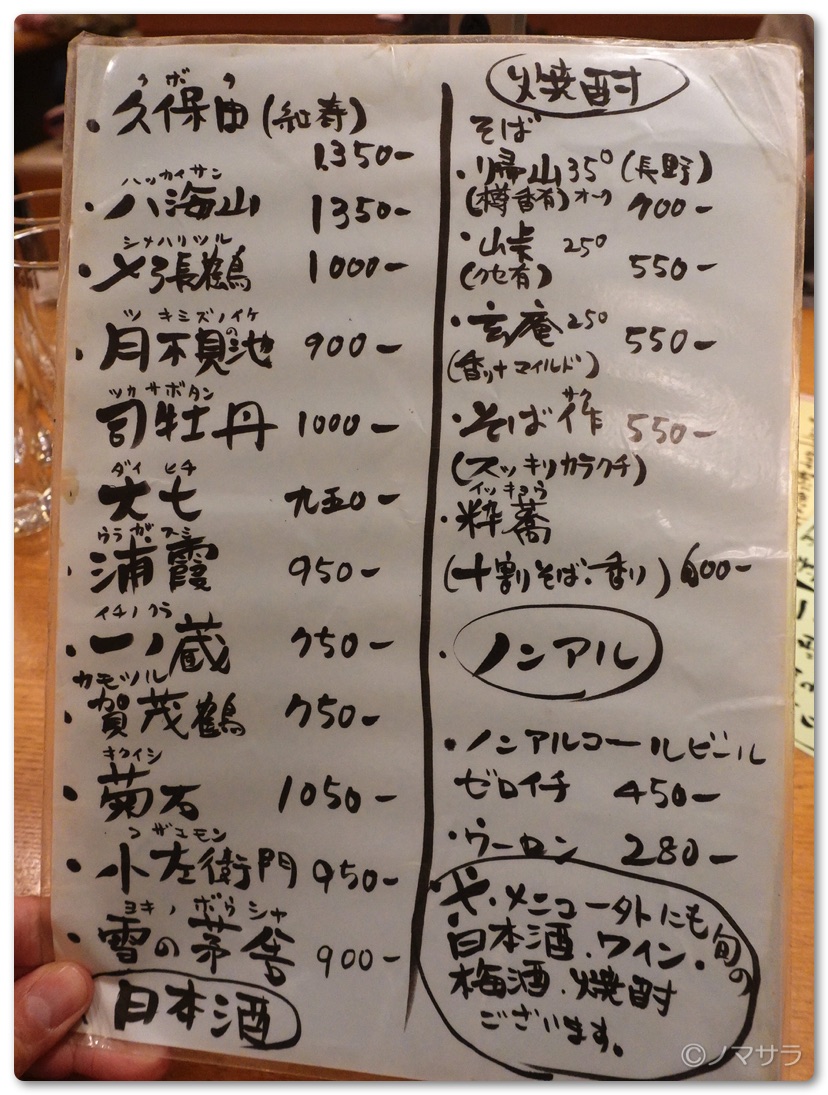 クボタ
・久保田(紅寿)
1350-
ハッカイサン
・八海山 1350-
シメハリツル
・〆張鶴 1000-
ツキミズノイケ
・月不見の池 900-
ツカサボタン
司牡丹 1000-
ダイヒチ
大七 九五0-
ウラガスミ
・浦霞 950-
イチノクラ
・一ノ蔵 750-
カモツル
・賀茂鶴 750-
キクイシ
・菊石 1050-
コザエモン
・小左衛門 950-
ユキノボウシャ
・雪の茅舎 900-
日本酒
焼酎
そば
・帰山35°(長野)
(樽香有)オーク 700-
・山峡 25°
(クセ有) 550-
・玄庵25° 550-
(香り+マイルド)
サク
・そば作 550-
(スッキリカラクチ)
イッキョウ
・粋蕎
(十割そば・香り) 600-
・ノンアル
・ノンアルコールビール
ゼロイチ 450-
・ウーロン 280-
☆・メニュー外にも旬の
日本酒・ワイン・
梅酒・焼酎
ございます。
©ノマサラ